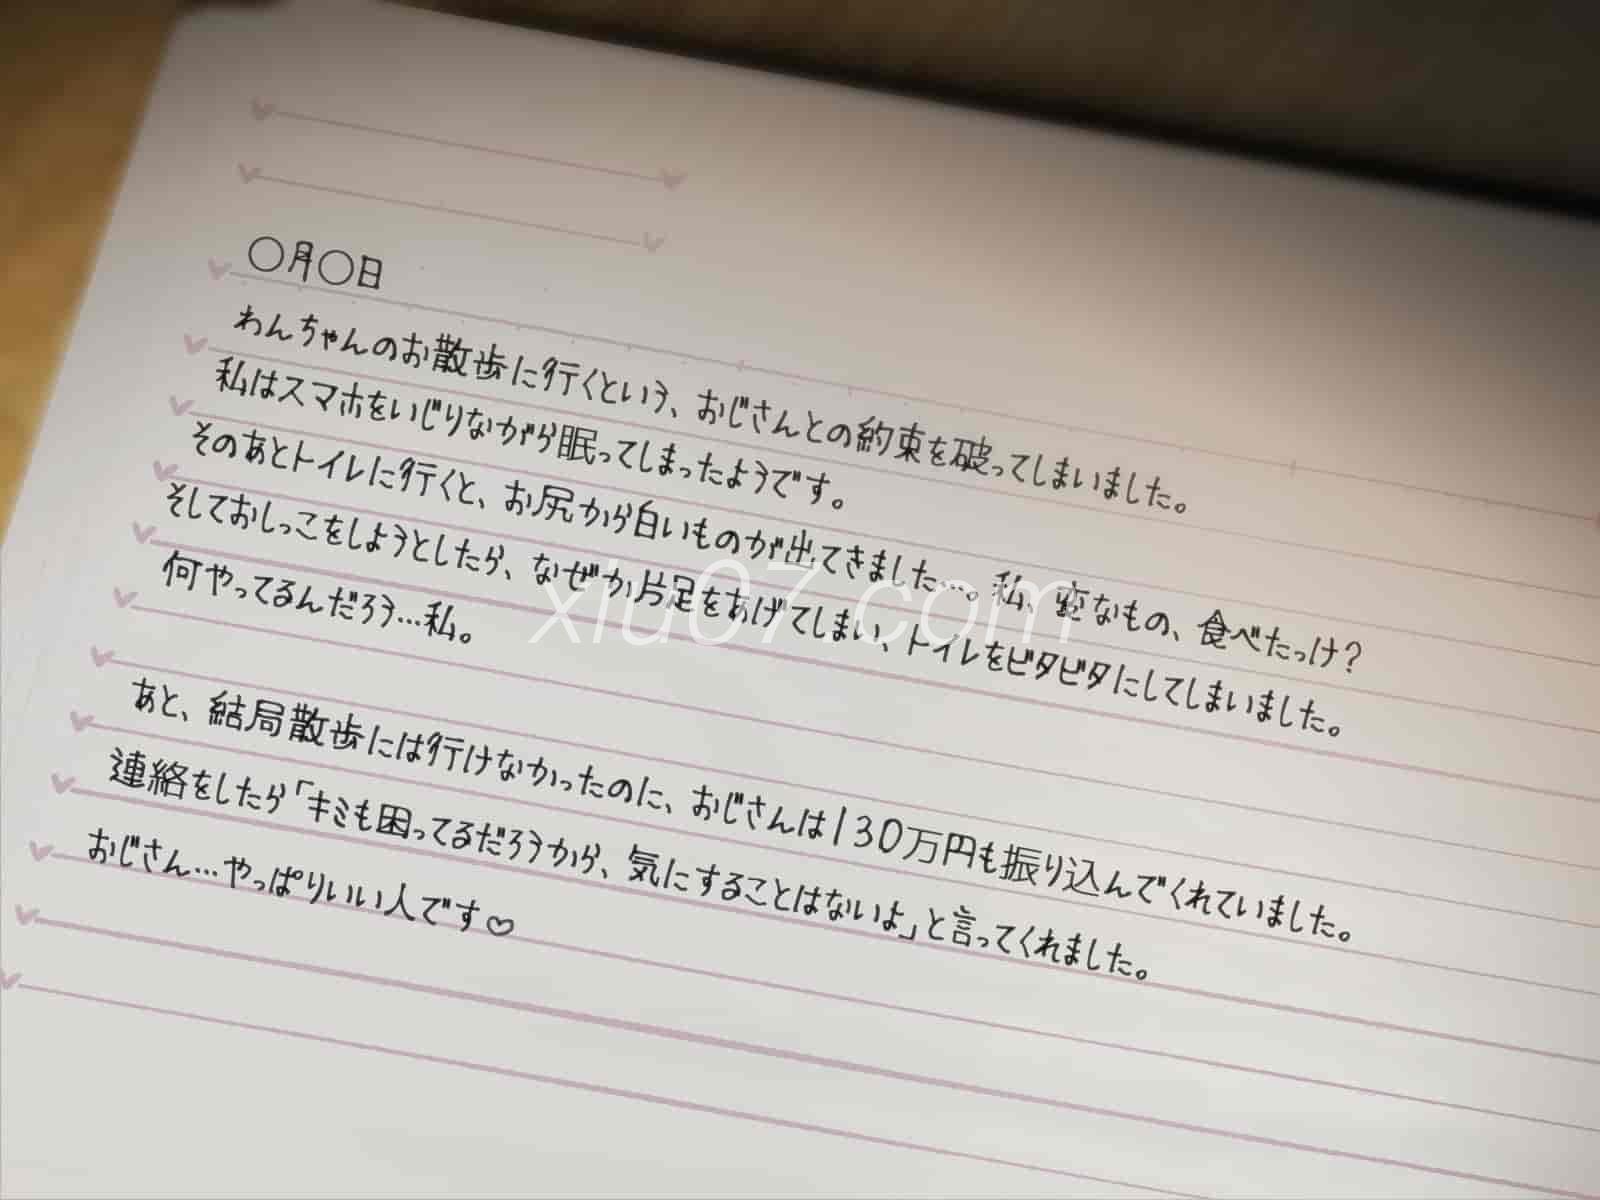 〇月〇日
わんちゃんのお散歩に行くという、おじさんとの約束を破ってしまいました。
私はスマホをいじりながら眠ってしまったようです。
そのあとトイレに行くと、お尻から白いものが出てきました…。私、変なもの、食べたっけ？
そしておしっこをしようとしたら、なぜか片足をあげてしまい、トイレをビタビタにしてしまいました。
何やってるんだろう…私。
xiu07.com
あと、結局散歩には行けなかったのに、おじさんは130万円も振り込んでくれていました。
連絡をしたら「キミも困ってるだろうから、気にすることはないよ」と言ってくれました。
おじさん…やっぱりいい人です♡